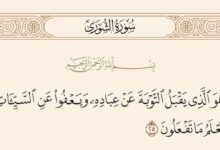 سُورَةُ الشُّورَىٰ
بِسْمِ ٱللَّهِ ٱلرَّحْمَٰنِ ٱلرَّحِيمِ
هُوَ ٱلَّذِى يَقْبَلُ ٱلتَّوْبَةَ عَنْ عِبَادِهِۦ وَيَعْفُوا۟ عَنِ ٱلسَّيِّـَٔاتِ
عْلَمُ مَا تَفْعَلُونَ ٢٥